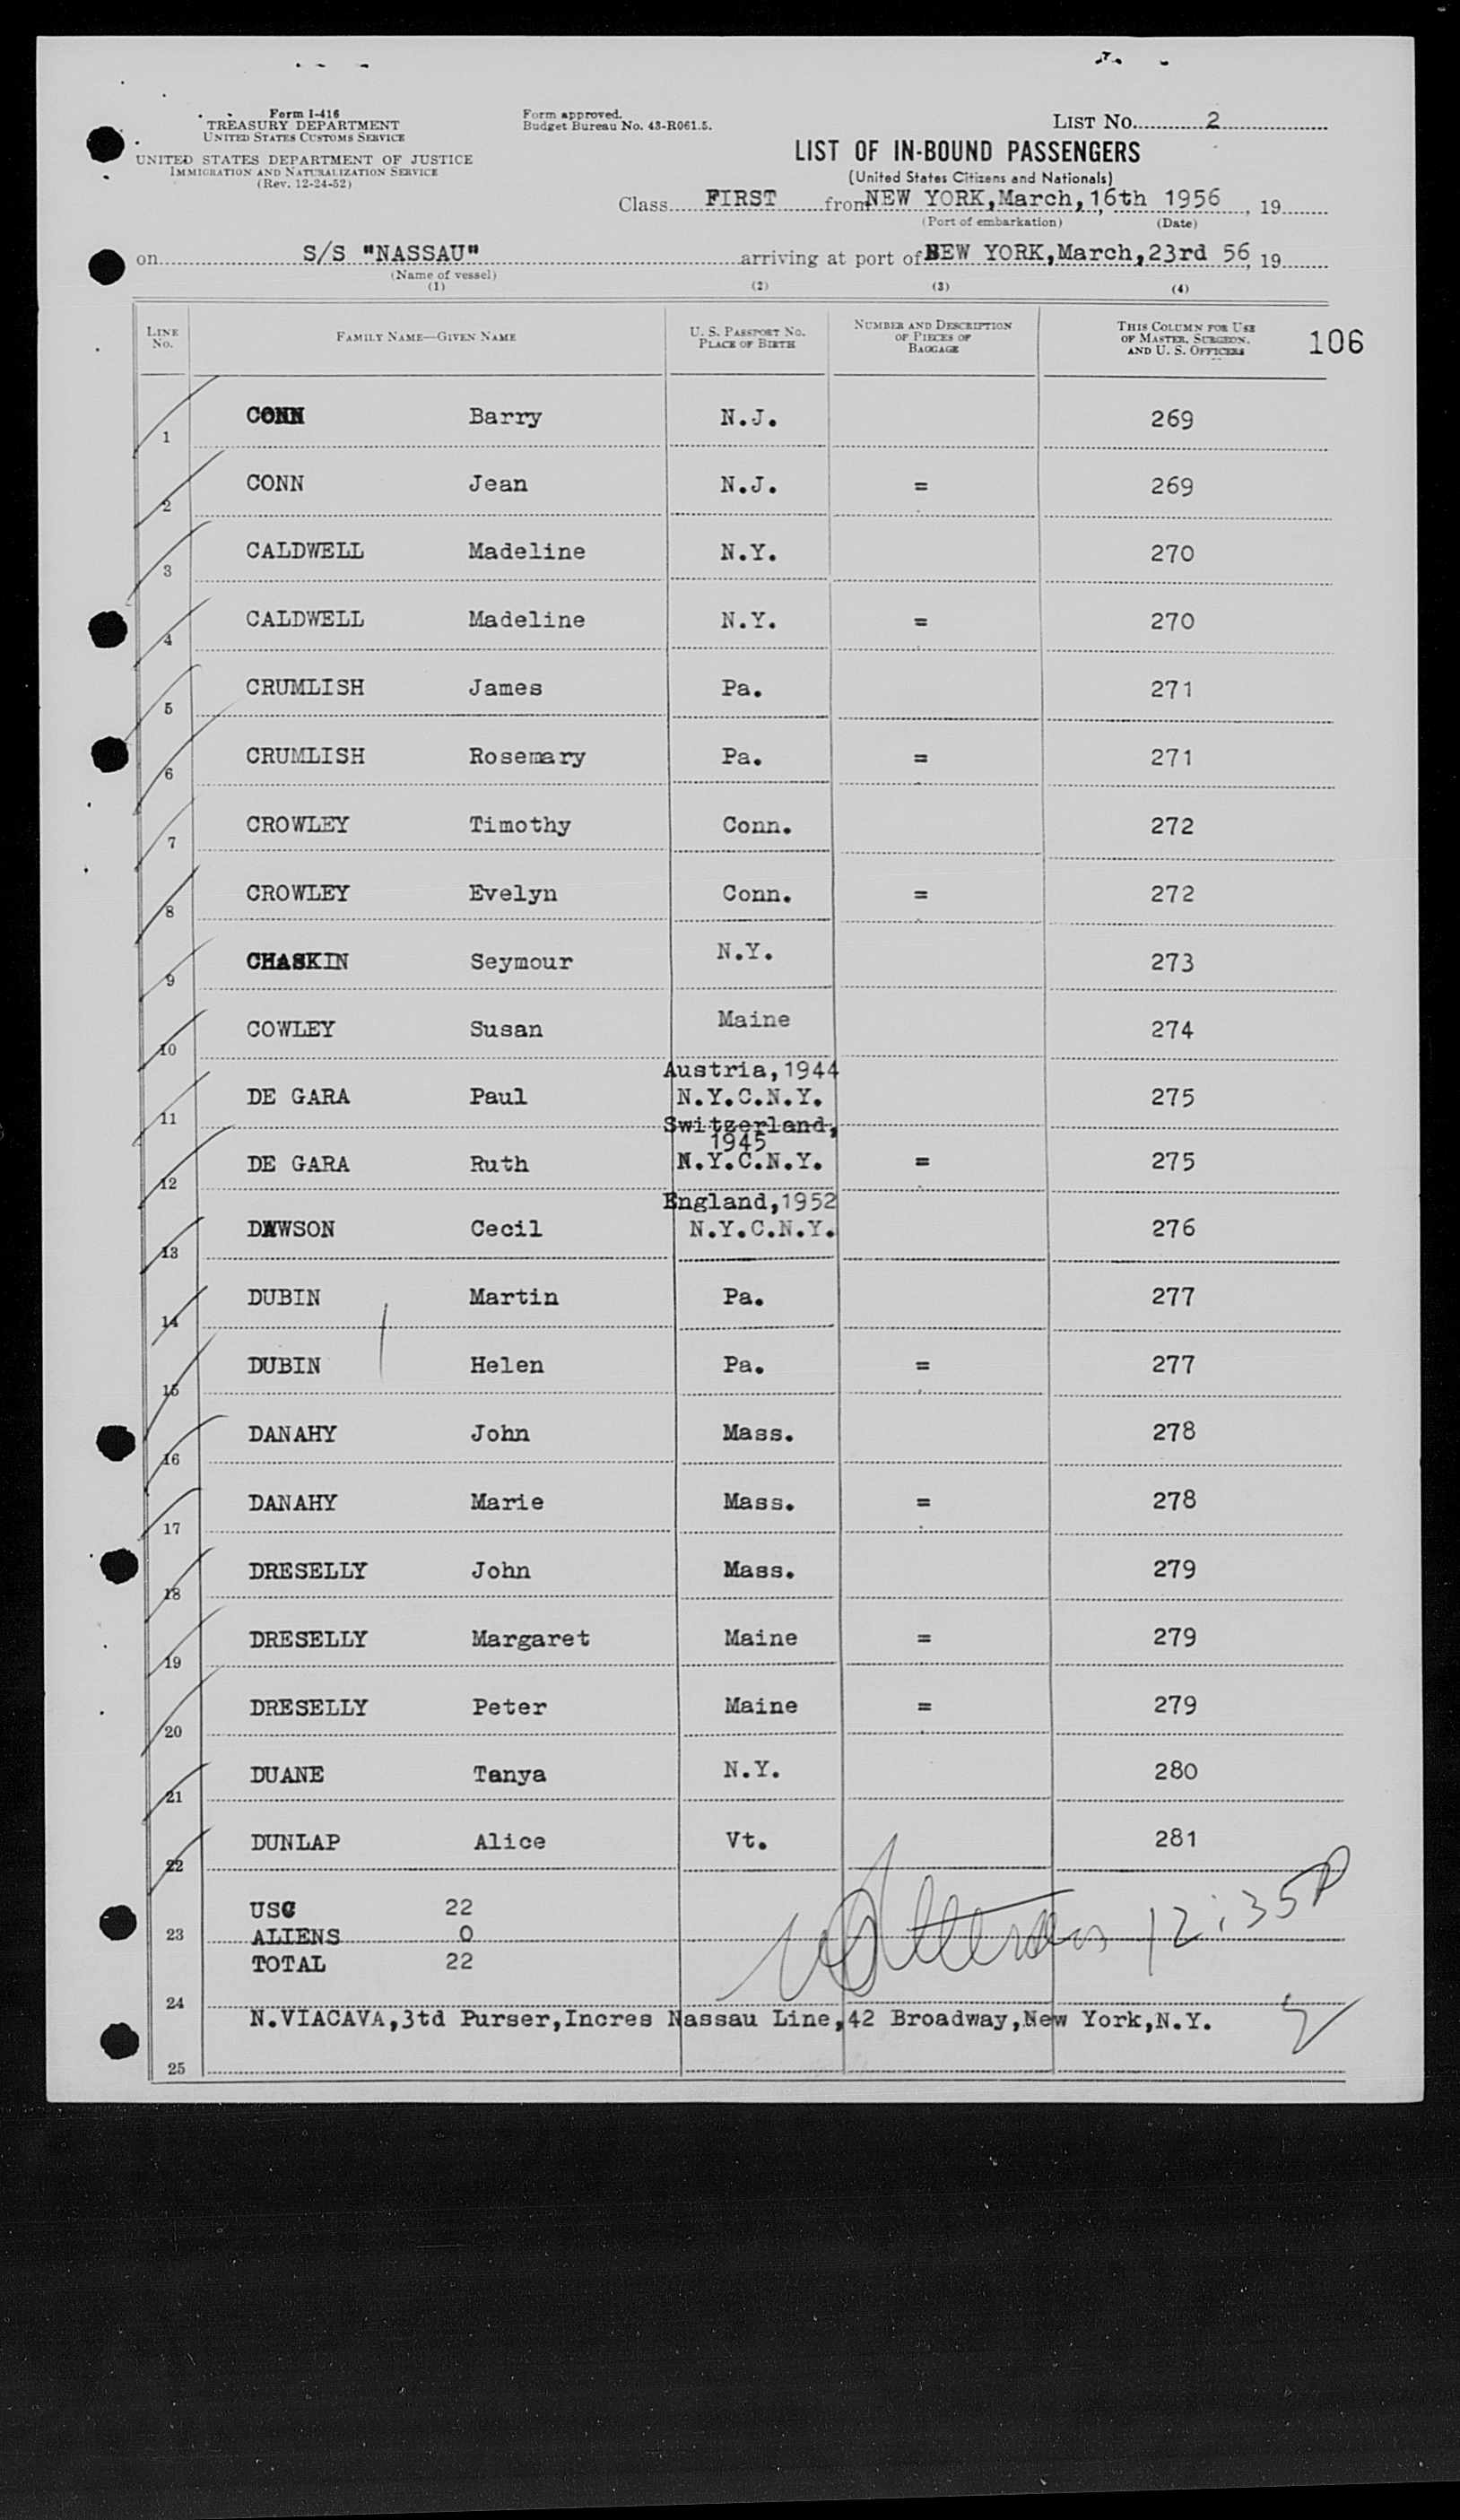 Form I-416
TREASURY DEPARTMENT
UNITED STATES CUSTOMS SERVICE
UNITED STATES DEPARTMENT OF JUSTICE
IMMIGRATION AND NATURALIZATION SERVICE
(Rev. 12-24-52)
Form approved.
Budget Bureau No. 43-R061.5.
LIST No. 2
LIST OF IN-BOUND PASSENGERS
(United States Citizens and Nationals)
Class FIRST from NEW YORK, March, 16th 1956, 19
(Port of embarkation) (Date)
on S/S "NASSAU" arriving at port of NEW YORK, March, 23rd 56, 19
(Name of vessel)
(1) (2) (3) (4)
LINE No. FAMILY NAME—GIVEN NAME U. S. PASSPORT No. PLACE OF BIRTH NUMBER AND DESCRIPTION OF PIECES OF BAGGAGE THIS COLUMN FOR USE OF MASTER, SURGEON, AND U. S. OFFICERS 106
1 CONN Barry N.J. 269
2 CONN Jean N.J. = 269
3 CALDWELL Madeline N.Y. 270
4 CALDWELL Madeline N.Y. = 270
5 CRUMLISH James Pa. 271
6 CRUMLISH Rosemary Pa. = 271
7 CROWLEY Timothy Conn. 272
8 CROWLEY Evelyn Conn. = 272
9 CHASKIN Seymour N.Y. 273
10 COWLEY Susan Maine 274
Austria, 1944
11 DE GARA Paul N.Y.C.N.Y. 275
Switzerland,
1945
12 DE GARA Ruth N.Y.C.N.Y. = 275
England, 1952
13 DAWSON Cecil N.Y.C.N.Y. 276
14 DUBIN Martin Pa. 277
15 DUBIN Helen Pa. = 277
16 DANAHY John Mass. 278
17 DANAHY Marie Mass. = 278
18 DRESELLY John Mass. 279
19 DRESELLY Margaret Maine = 279
20 DRESELLY Peter Maine = 279
21 DUANE Tanya N.Y. 280
22 DUNLAP Alice Vt. 281
USC 22
23 ALIENS 0 12:35P
TOTAL 22
24
N.VIACAVA,3td Purser,Incres Nassau Line,42 Broadway,New York,N.Y.
25